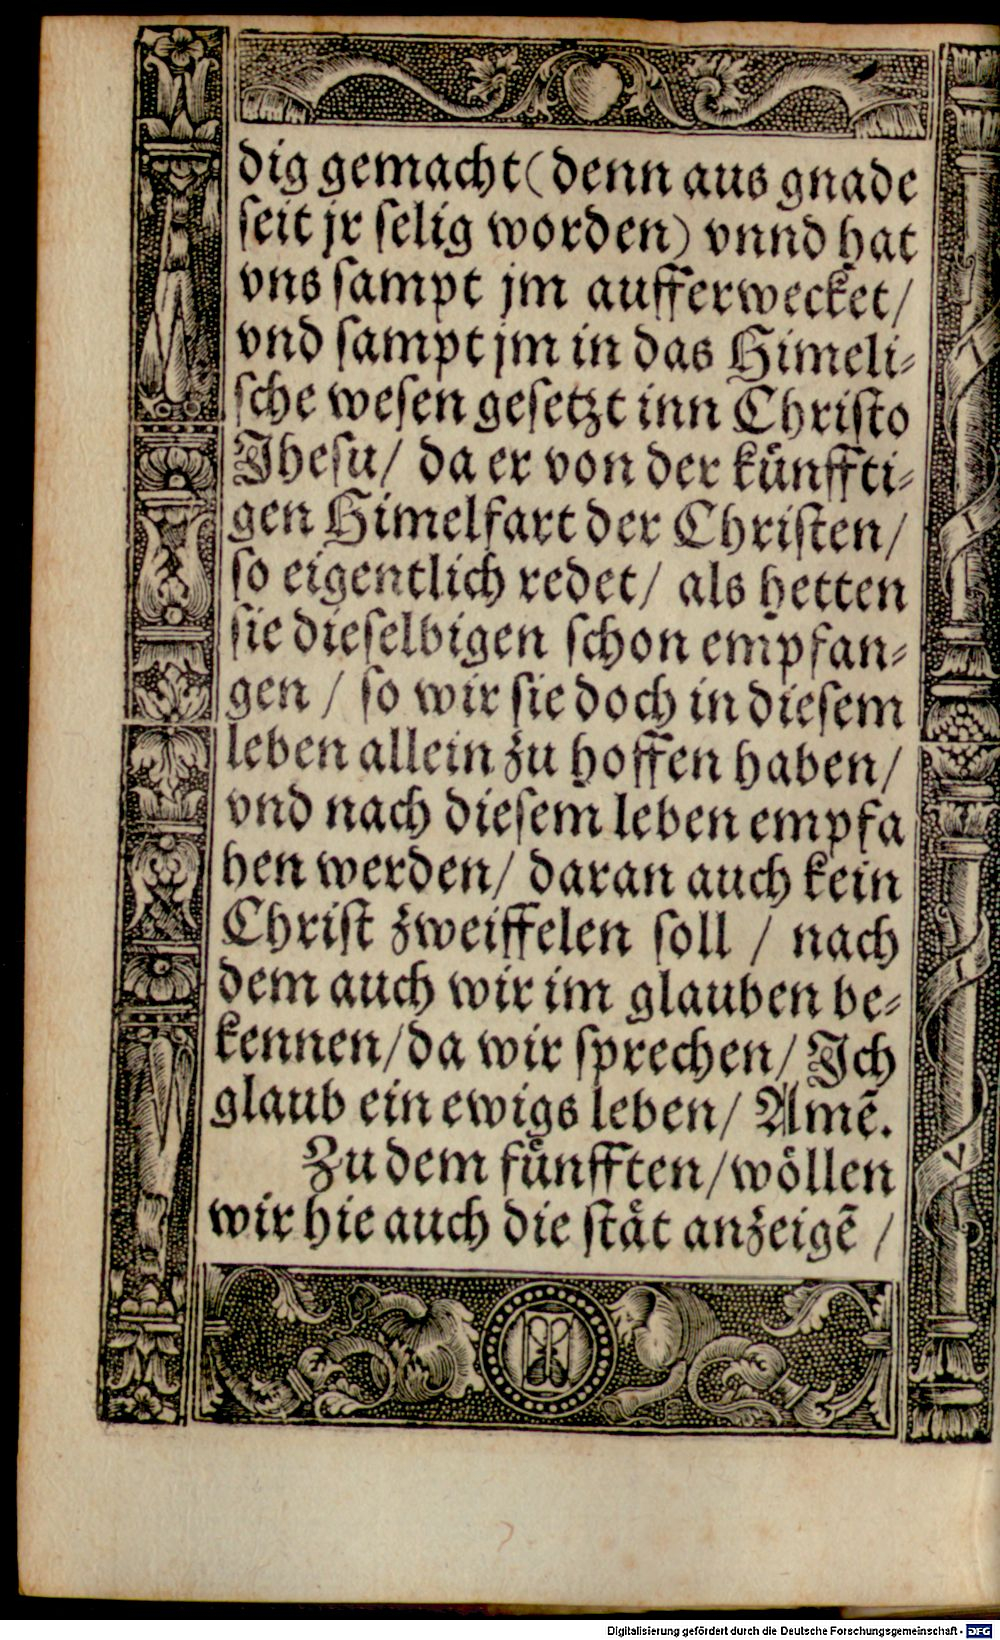 dig gemacht (denn aus gnade
ſeit jr ſelig worden) vnnd hat
vns ſampt jm aufferwecket /
vnd ſampt jm in das Himeli⸗
ſche weſen geſetzt inn Chriſto
Jheſu / da er von der künffti⸗
gen Himelfart der Chriſten /
ſo eigentlich redet / als hetten
ſie dieſelbigen ſchon empfan⸗
gen / ſo wir ſie doch in dieſem
leben allein zu hoffen haben /
vnd nach dieſem leben empfa
hen werden / daran auch kein
Chriſt zweiffelen ſoll / nach
dem auch wir im glauben be⸗
kennen / da wir ſprechen / Jch
glaub ein ewigs leben / Amẽ.
Zu dem fuͤnfften / woͤllen
wir hie auch die ſtaͤt anzeigẽ /
Digitalisierung gefördert durch die Deutsche Forschungsgemeinschaft - DFG